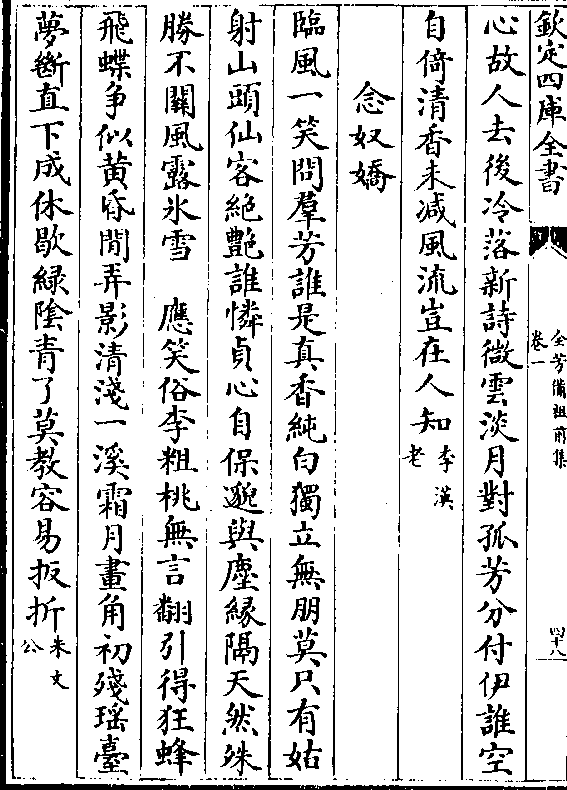 欽定四庫全書
全芳備祖前集
卷一
四十八
心故人去後冷落新詩微雲淡月對孤芳分付伊誰空
自倚清香未减風流豈在人知李漢
老
念奴嬌
臨風一笑問羣芳誰是真香純白獨立無朋莫只有姑
射山頭仙客絶艶誰憐貞心自保邈與塵緣隔天然殊
勝不關風露氷雪　應笑俗李粗桃無言翻引得狂蜂
飛蝶争似黄昏閒弄影清淺一溪霜月畫角初殘瑶臺
夢斷直下成休歇緑陰青了莫教容易扳折朱文
公